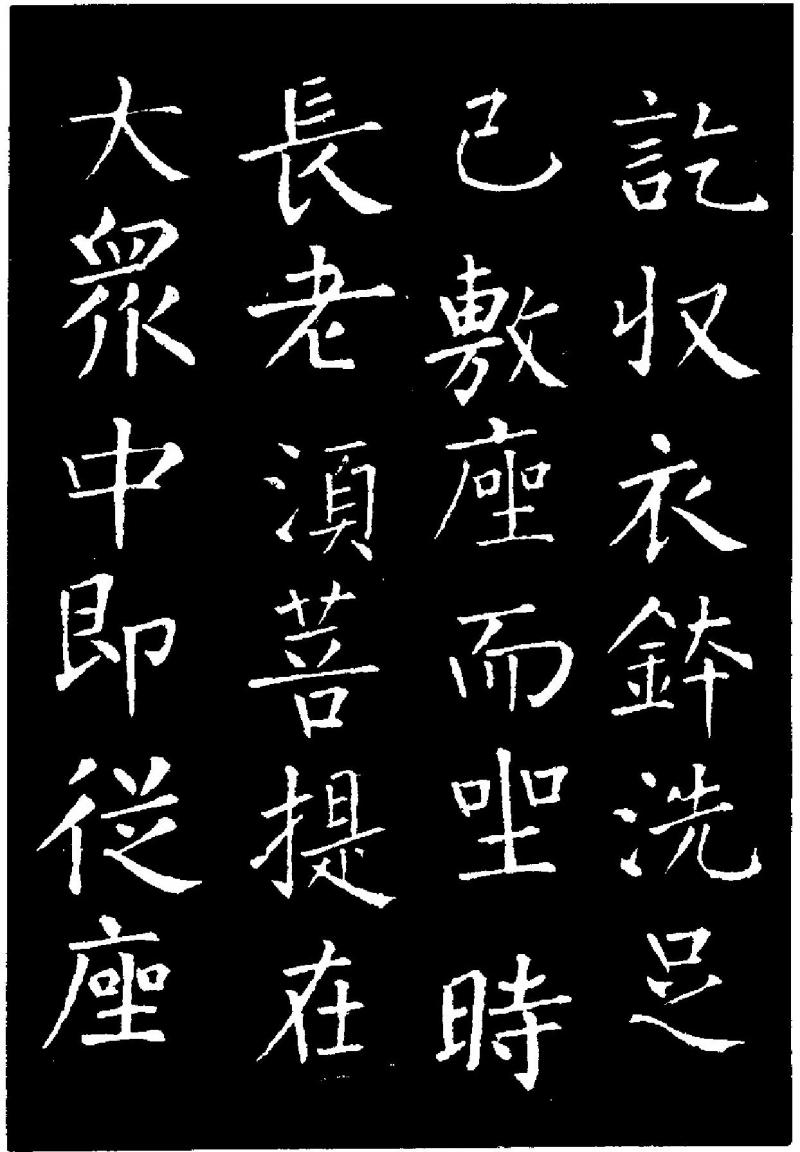 訖収衣鉢洗足
已敷座而坐時
長老湏菩提在
大眾中即從座